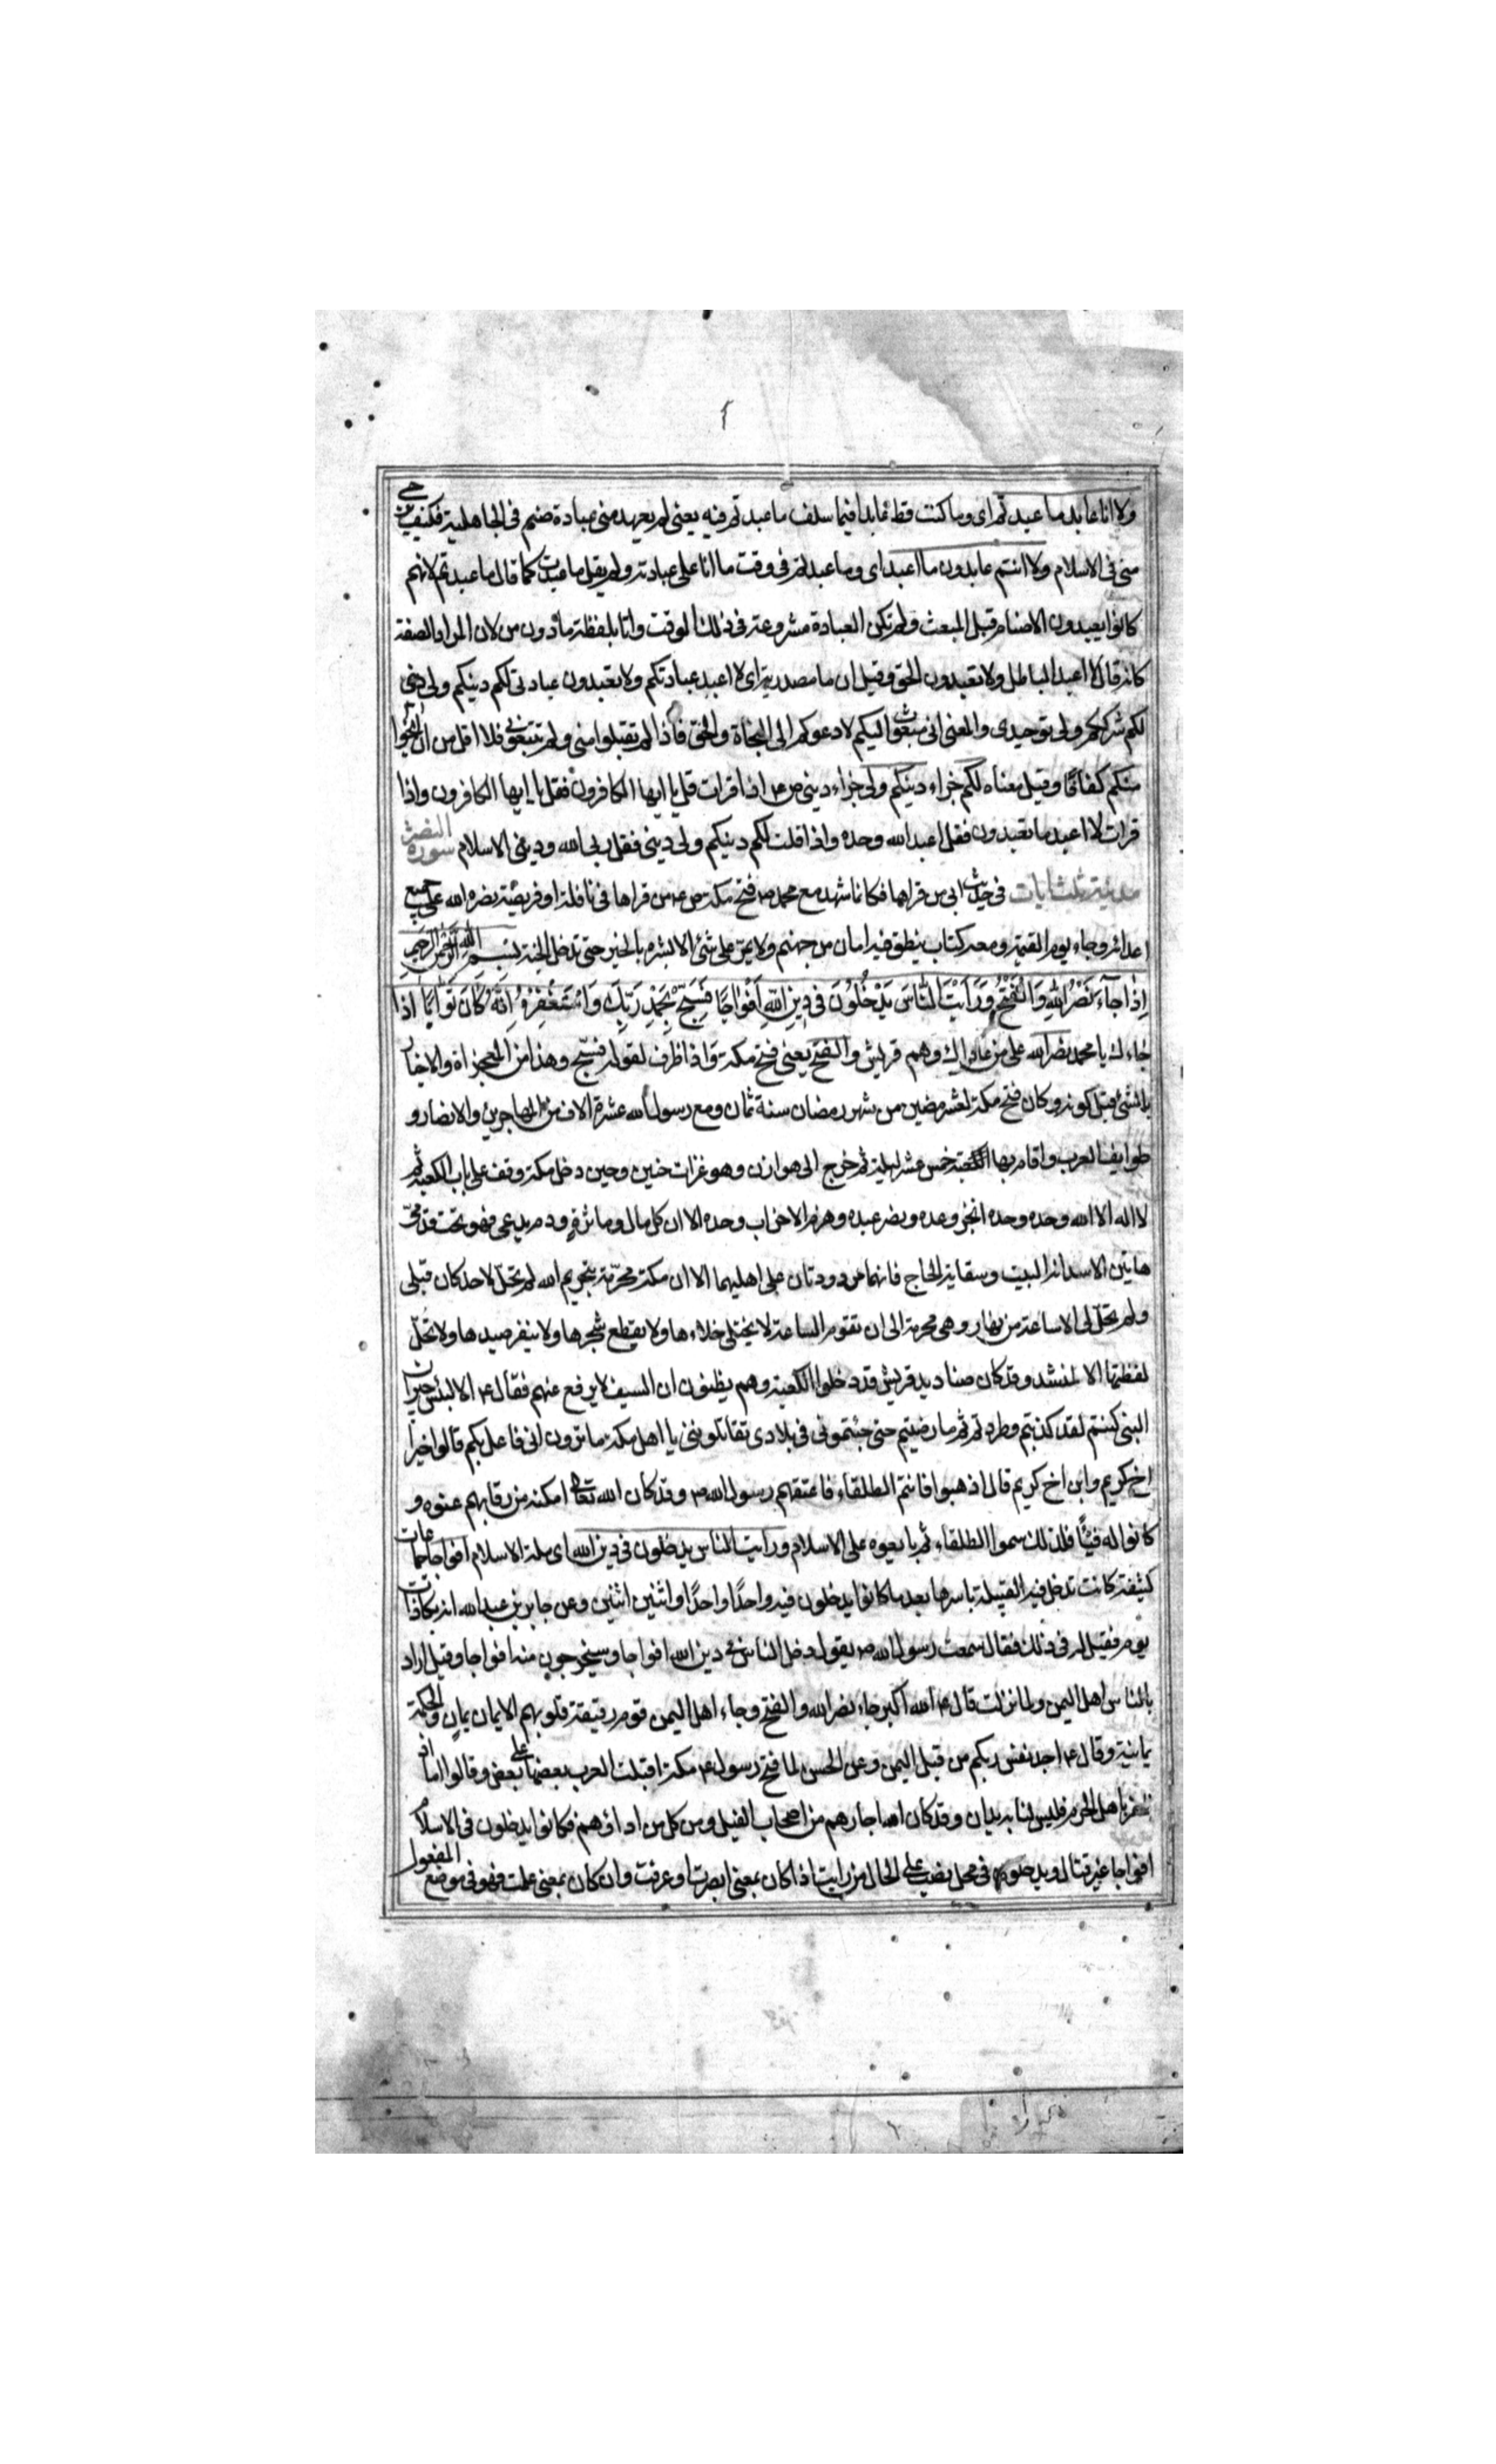 ولا انا عابد ما عبدتم اى وما كنت قط عابدا فيما سلف ما عبدتم فيه يعنى لم يعهد منى عبادة صنم فى الجاهلية فكيف يرجى
منى فى الاسلام ولا انتم عابدون ما اعبد اى وما عبدتم فى وقت ما انا على عبادته ولم يقل ما عبدت كما قال ما عبدتم لانهم
كانوا يعبدون الاصنام قبل المبعث ولم تكن العبادة مشروعة فى ذلك الوقت واتا بلفظة ما دون من لان المراد الصفة
كانه قال لا اعبد الباطل ولا تعبدون الحق وقيل ان ما مصدرية اى لا اعبد عبادتكم ولا تعبدون عبادتى لكم دينكم ولى دين
لكم شرككم ولى توحيدى والمعنى انى مبعوث اليكم لادعوكم الى النجاة والحق فاذا لم تقبلوا منى ولم تتبعونى فلا اقل من ان انجوا
منكم كفافا وقيل معناه لكم جزاء دينكم ولى جزاء دينى ص ع اذا قرات قل يا ايها الكافرون فقل يا ايها الكافرون واذا
قرات لا اعبد ما تعبدون فقل اعبد الله وحده واذا قلت لكم دينكم ولى دينى فقل ربى الله ودينى الاسلام سورة النصر
مدنية ثلث ايات فى حديث ابى من قراها فكانما شهد مع محمد ص فتح مكة ص ع من قراها فى نافلة او فريضة نصره الله على جميع
اعدائه وجاء يوم القيمة ومعه كتاب ينطق فيه امان من جهنم ولا يمر على شئ الا بشره بالخير حتى تدخل الجنة بسم الله الرحمن الرحيم
اِذَا جَآءَ نَصْرُ اللهِ وَالْفَتْحُ وَرَاَيْتَ النَّاسَ يَدْخُلُوُنَ فى دِينِ اللهِ اَفْوٰاجًا فَسَبِّحْ بِحَمْدِ رَبِّكَ وَاسْتَغْفِرْهُ اِنَّهُ كَانَ تَوّٰابًا اذا
جاءك يا محمد نصر الله على من عاداك وهم قريش والفتح يعنى فتح مكة واذا ظرف لقوله فسبح وهذا من المعجزاة والاخبار
بالشئ قبل كونه وكان فتح مكة لعشر مضين من شهر رمضان سنة ثمان ومع رسول الله عشرة الاف من المهاجرين والانصار و
طوايف العرب واقام بها خمس عشر ليلة ثم خرج الى هوازن وهو غزات حنين وحين دخل مكة وقف على باب الكعبة ثم
لا اله الا الله وحده وحده انجز وعده ونصر عبده وهزم الاحزاب وحده الا ان كل مال وماثرة ودم يدعى فهو تحت قدمى
هاتين الا سدانة البيت وسقاية الحاج فانهما مردودتان على اهليهما الا ان مكة محرمة بتحريم الله لم تحل لاحد كان قبلى
ولم تحل لى الا ساعة من نهار وهى محرمة الى ان تقوم الساعة لا يختلى خلاءها ولا يقطع شجرها ولا ينفر صيدها ولا تحل
لقطتها الا لمنشد وقد كان صناديد قريش قد دخلوا الكعبة وهم يظنون ان السيف لا يرفع عنهم فقال ع الا لبئس جيران
النبى كنتم لقد كذبتم وطردتم ثم ما رضيتم حتى جئتمونى فى بلادى تقاتلوننى يا اهل مكة ما ترون انى فاعل بكم قالوا خيرا
اخ كريم وابن اخ كريم قال اذهبوا فانتم الطلقاء فاعتقهم رسول الله ص وقد كان الله تعالى امكنه من رقابهم عنوه و
كانوا له فيئا فلذلك سموا الطلقاء ثم بايعوه على الاسلام ورايت الناس يدخلون فى دين الله اى ملة الاسلام افواجا جماعات
كثيفة كانت تدخل فيه القبيلة باسرها بعد ما كانوا يدخلون فيه واحدًا واحدًا واثنين اثنين وعن جابر بن عبد الله انه بكا ذات
يوم فقيل له فى ذلك فقال سمعت رسول الله ص يقول دخل الناس فى دين الله افواجا وسيخرجون منه افواجا وقيل اراد
بالناس اهل اليمن ولما نزلت قال ع الله اكبر جاء نصر الله والفتح وجاء اهل اليمن قوم رقيقة قلوبهم الايمان يمان والحكمة
يمانية وقال ع اجد نفس ربكم من قبل اليمن وعن الحسن لما فتح رسول ع مكة اقبلت العرب بعضها على بعض وقالوا اما اذ
ظفر باهل الحرم فليس لنا به يدان وقد كان الله اجارهم من اصحاب الفيل ومن كل من ارادهم فكانوا يدخلون فى الاسلام
افواجا غير قتال ويدخلون فى محل نصب على الحال من رايت اذا كان بمعنى ابصرت او عرفت وان كان بمعنى علمت فهو فى موضع المفعول